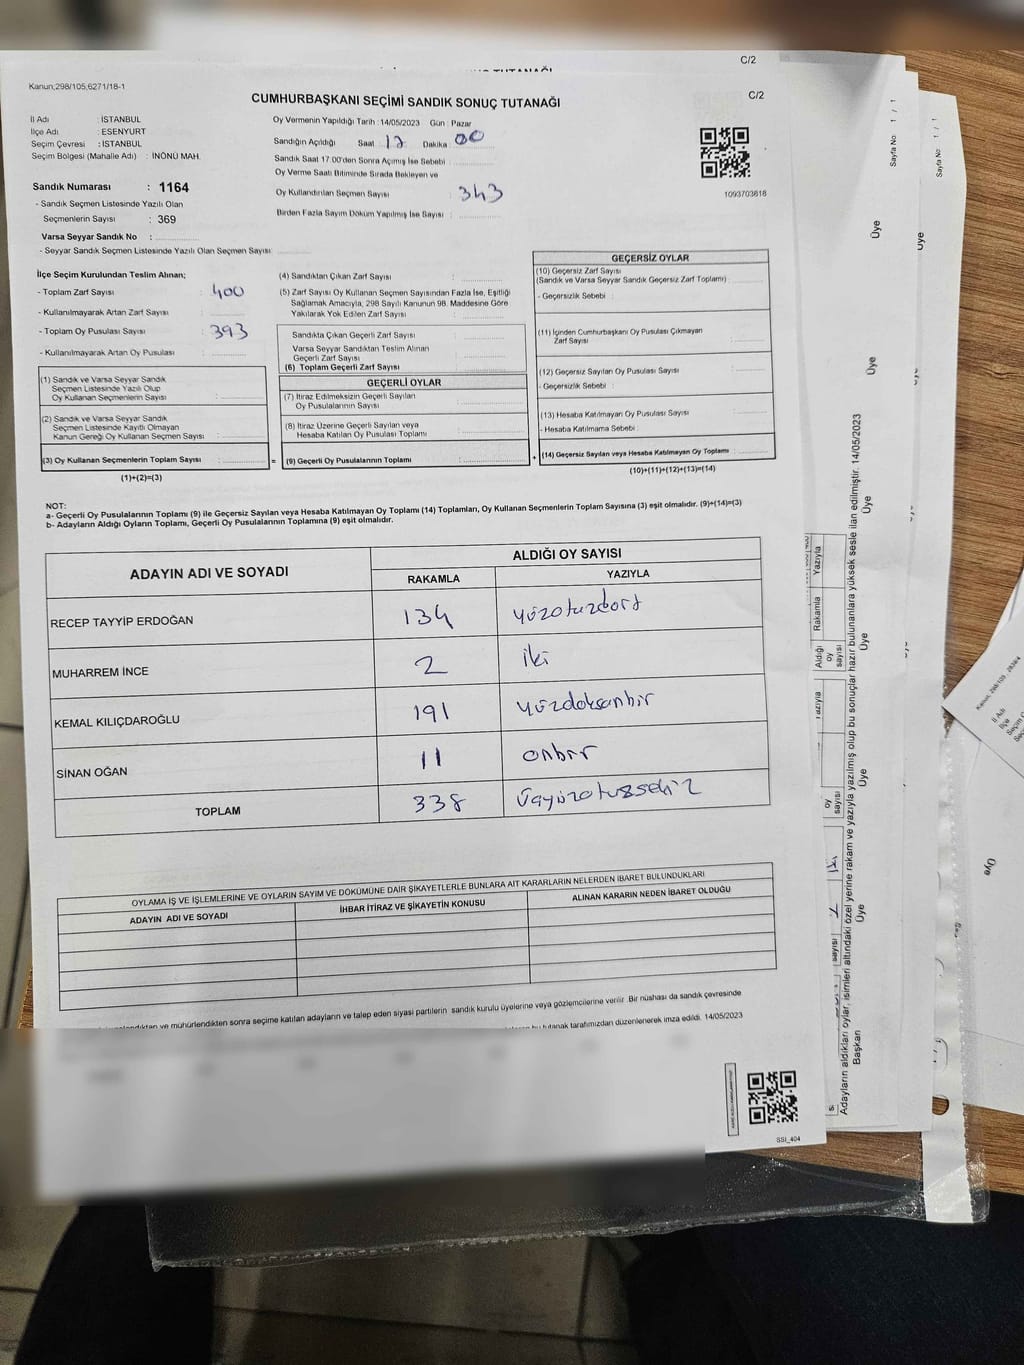 C/2
Kanun;298/105,6271/18-1
CUMHURBAŞKANI SEÇİMİ SANDIK SONUÇ TUTANAĞI
C/2
İl Adı : İSTANBUL
İlçe Adı : ESENYURT
Seçim Çevresi : İSTANBUL
Seçim Bölgesi (Mahalle Adı) : İNÖNÜ MAH.
Sandık Numarası : 1164
- Sandık Seçmen Listesinde Yazılı Olan
Seçmenlerin Sayısı : 369
Varsa Seyyar Sandık No :
- Seyyar Sandık Seçmen Listesinde Yazılı Olan Seçmen Sayısı
Oy Vermenin Yapıldığı Tarih : 14/05/2023 Gün : Pazar
Sandığın Açıldığı Saat 17 Dakika 00
Sandık Saat 17:00'den Sonra Açılmış İse Sebebi :
Oy Verme Saati Bitiminde Sırada Bekleyen ve
Oy Kullandırılan Seçmen Sayısı : 343
Birden Fazla Sayım Döküm Yapılmış İse Sayısı :
1093703618
İlçe Seçim Kurulundan Teslim Alınan;
- Toplam Zarf Sayısı : 400
- Kullanılmayarak Artan Zarf Sayısı :
- Toplam Oy Pusulası Sayısı : 393
- Kullanılmayarak Artan Oy Pusulası :
(1) Sandık ve Varsa Seyyar Sandık
Seçmen Listesinde Yazılı Olup
Oy Kullanan Seçmenlerin Sayısı :
(2) Sandık ve Varsa Seyyar Sandık
Seçmen Listesinde Kayıtlı Olmayan
Kanun Gereği Oy Kullanan Seçmen Sayısı :
(3) Oy Kullanan Seçmenlerin Toplam Sayısı :
(1)+(2)=(3)
(4) Sandıktan Çıkan Zarf Sayısı :
(5) Zarf Sayısı Oy Kullanan Seçmen Sayısından Fazla İse, Eşitliği
Sağlamak Amacıyla, 298 Sayılı Kanunun 98. Maddesine Göre
Yakılarak Yok Edilen Zarf Sayısı :
Sandıkta Çıkan Geçerli Zarf Sayısı :
Varsa Seyyar Sandıktan Teslim Alınan
Geçerli Zarf Sayısı :
(6) Toplam Geçerli Zarf Sayısı :
GEÇERLİ OYLAR
(7) İtiraz Edilmeksizin Geçerli Sayılan
Oy Pusulalarının Sayısı :
(8) İtiraz Üzerine Geçerli Sayılan veya
Hesaba Katılan Oy Pusulası Toplamı :
= (9) Geçerli Oy Pusulalarının Toplamı :
GEÇERSİZ OYLAR
(10) Geçersiz Zarf Sayısı
(Sandık ve Varsa Seyyar Sandık Geçersiz Zarf Toplamı) :
- Geçersizlik Sebebi :
(11) İçinden Cumhurbaşkanı Oy Pusulası Çıkmayan
Zarf Sayısı :
(12) Geçersiz Sayılan Oy Pusulası Sayısı :
- Geçersizlik Sebebi :
(13) Hesaba Katılmayan Oy Pusulası Sayısı :
- Hesaba Katılmama Sebebi :
+ (14) Geçersiz Sayılan veya Hesaba Katılmayan Oy Toplamı :
(10)+(11)+(12)+(13)=(14)
NOT:
a- Geçerli Oy Pusulalarının Toplamı (9) ile Geçersiz Sayılan veya Hesaba Katılmayan Oy Toplamı (14) Toplamları, Oy Kullanan Seçmenlerin Toplam Sayısına (3) eşit olmalıdır. (9)+(14)=(3)
b- Adayların Aldığı Oyların Toplamı, Geçerli Oy Pusulalarının Toplamına (9) eşit olmalıdır.
ADAYIN ADI VE SOYADI
ALDIĞI OY SAYISI
RAKAMLA YAZIYLA
RECEP TAYYİP ERDOĞAN 134 yüzotuzdört
MUHARREM İNCE 2 iki
KEMAL KILIÇDAROĞLU 191 yüzdoksanbir
SİNAN OĞAN 11 onbir
TOPLAM 338 üçyüzotuzsekiz
OYLAMA İŞ VE İŞLEMLERİNE VE OYLARIN SAYIM VE DÖKÜMÜNE DAİR ŞİKAYETLERLE BUNLARA AİT KARARLARIN NELERDEN İBARET BULUNDUKLARI
ADAYIN ADI VE SOYADI İHBAR İTİRAZ VE ŞİKAYETİN KONUSU ALINAN KARARIN NEDEN İBARET OLDUĞU
ve mühürlendikten sonra seçime katılan adayların ve talep eden siyasi partilerin sandık kurulu üyelerine veya gözlemcilerine verilir .Bir nüshası da sandık çevresinde
tutanak tarafımızdan düzenlenerek imza edildi. 14/05/2023
SSİ_404
Adayların aldıkları oylar, isimleri altındaki özel yerine rakam ve yazıyla yazılmış olup bu sonuçlar hazır bulunanlara yüksek sesle ilan edilmiştir. 14/05/2023
Başkan Üye Üye Üye Üye Üye Üye
Aldığı oy sayısı Rakamla Yazıyla
Sayfa No: 1 / 1
Sayfa No: 1 / 1
Üye
Üye